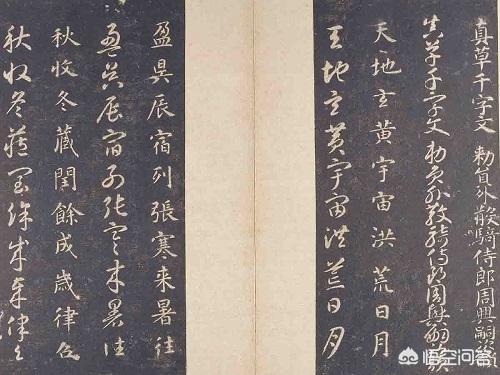 真草千字文 勑員外散騎侍郎周興嗣次韻
真草千字文 勑員外散騎侍郎周興嗣次韻
天地玄黃宇宙洪荒日月
天地玄黃宇宙洪荒日月
盈昃辰宿列張寒来暑往
盈昃辰宿列張寒来暑往
秋收冬藏閏餘成歲律召
秋收冬藏閏餘成歲律召
悟空问答